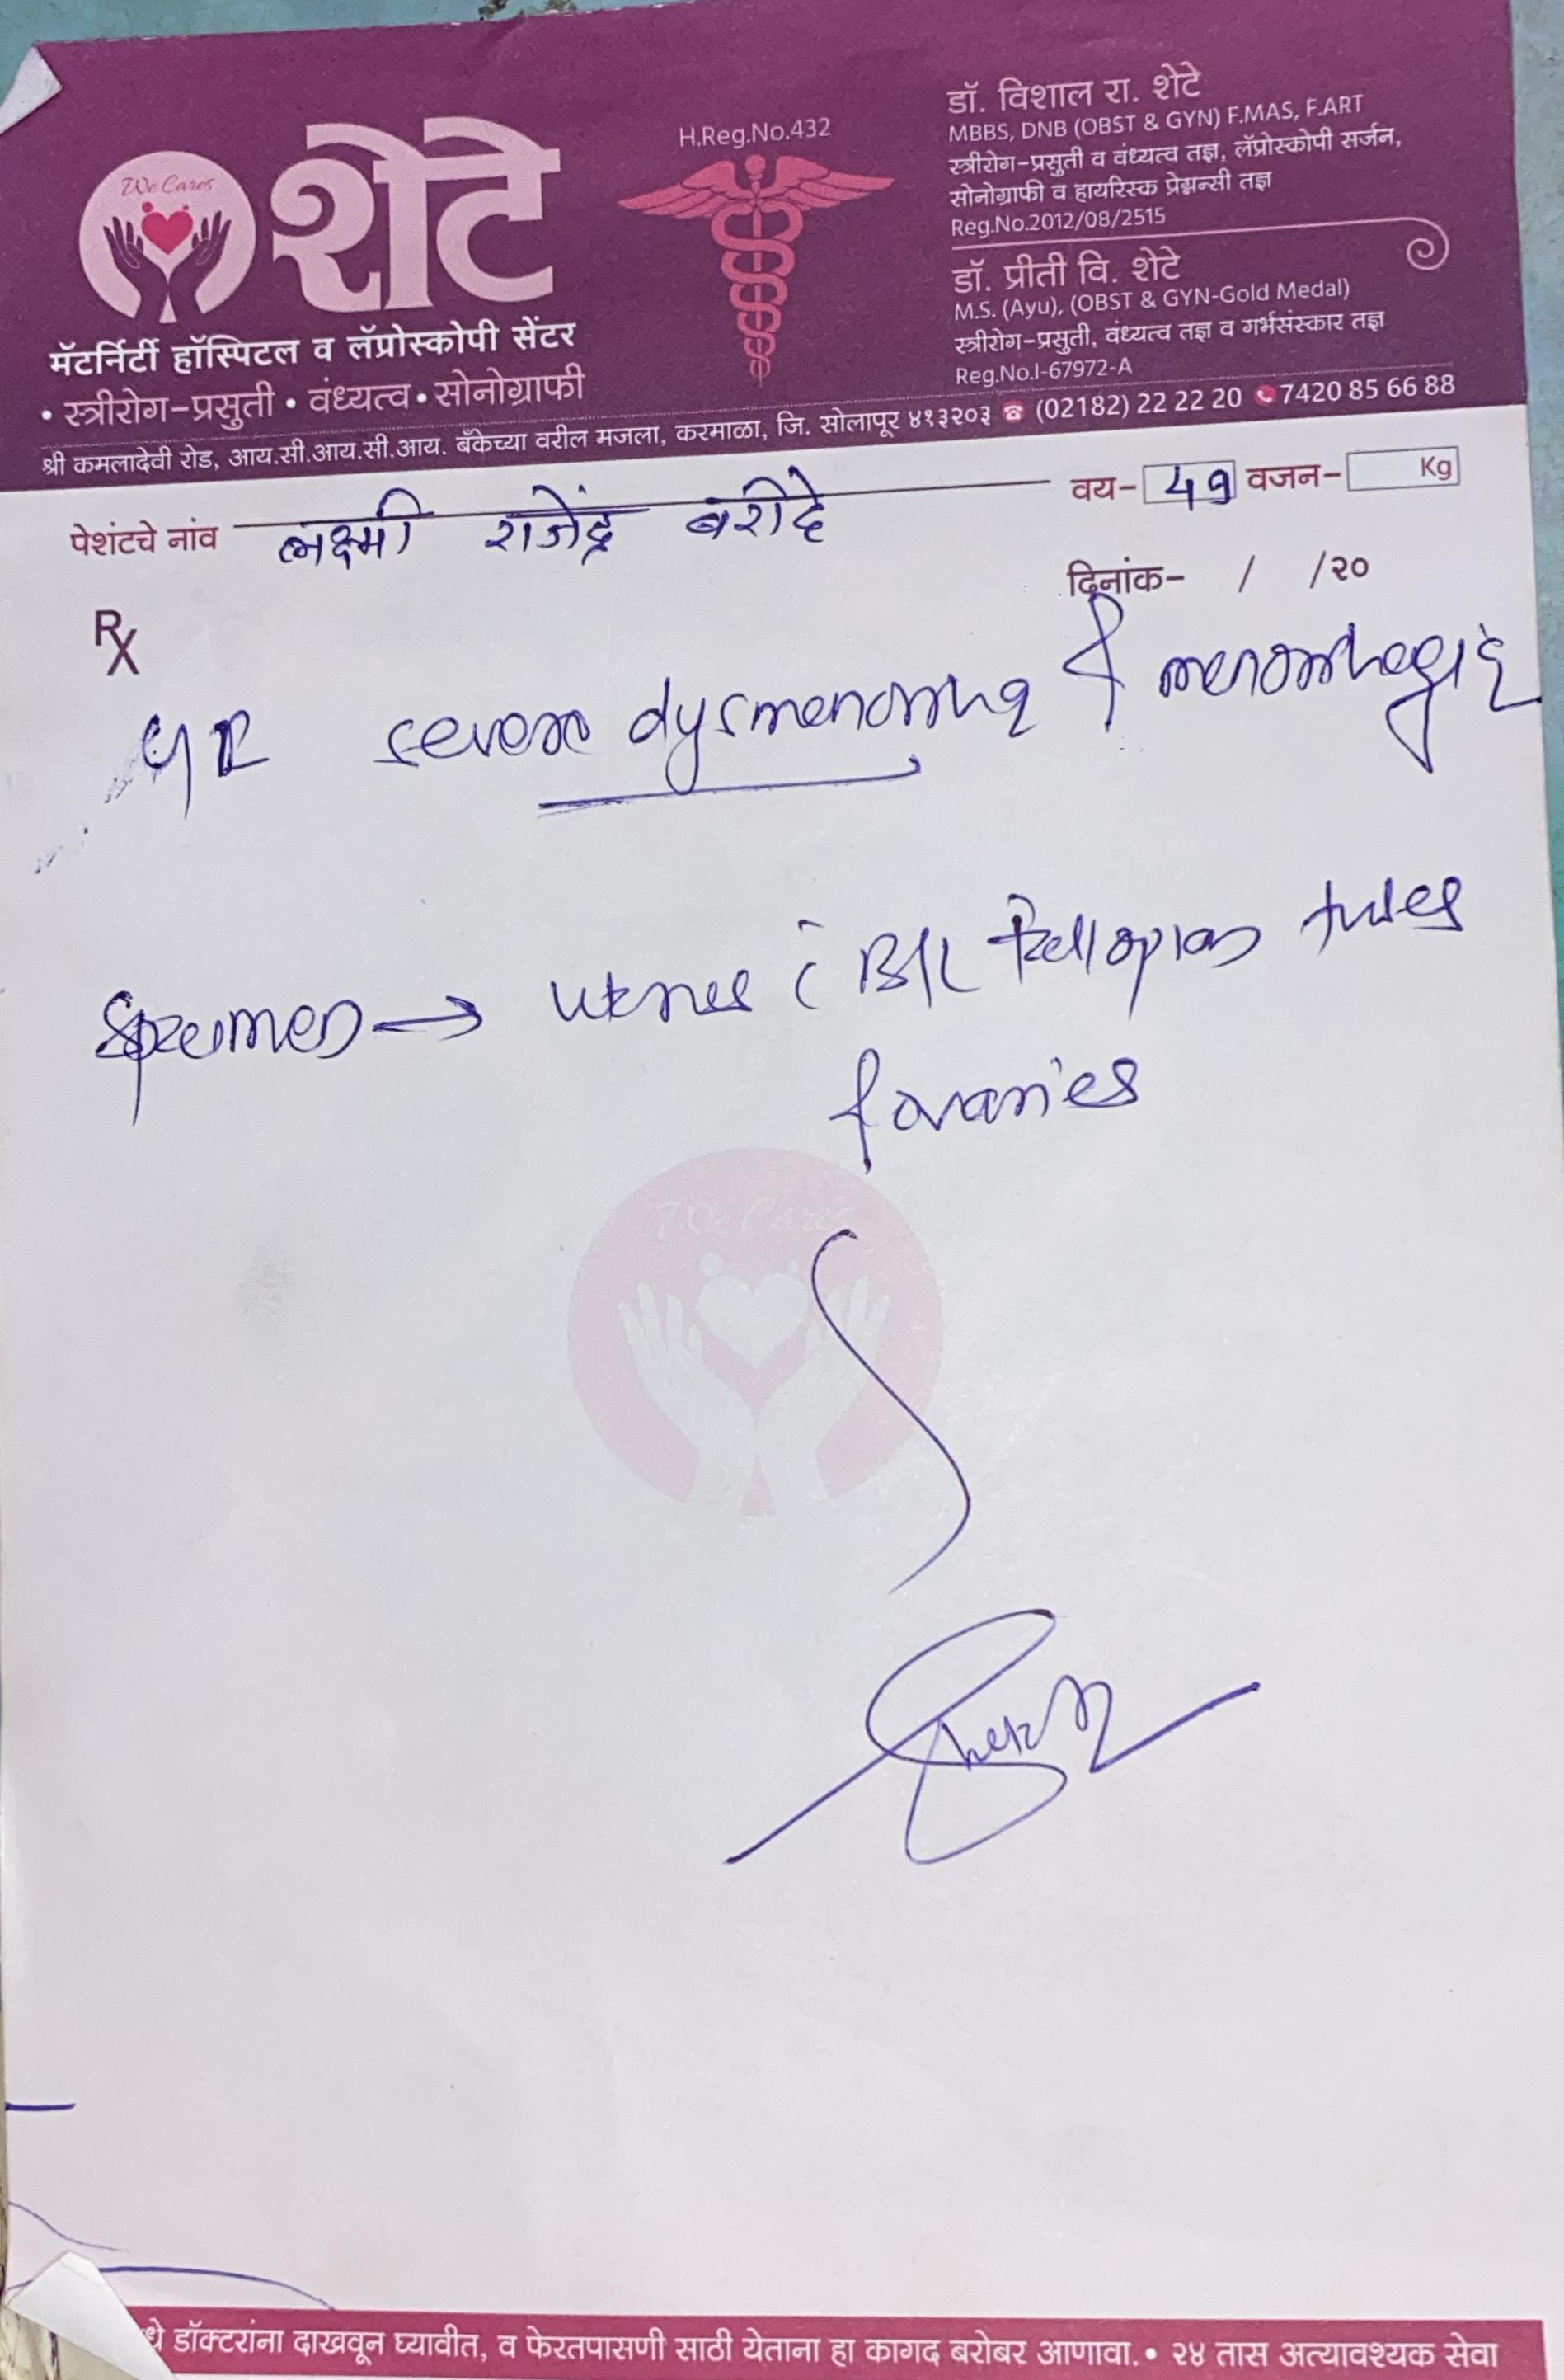 We Cares
शेटे
मॅटर्निटी हॉस्पिटल व लॅप्रोस्कोपी सेंटर
• स्त्रीरोग-प्रसुती • वंध्यत्व • सोनोग्राफी
H.Reg.No.432
डॉ. विशाल रा. शेटे
MBBS, DNB (OBST & GYN) F.MAS, F.ART
स्त्रीरोग-प्रसुती व वंध्यत्व तज्ञ, लॅप्रोस्कोपी सर्जन,
सोनोग्राफी व हायरिस्क प्रेग्नन्सी तज्ञ
Reg.No.2012/08/2515
डॉ. प्रीती वि. शेटे
M.S. (Ayu), (OBST & GYN-Gold Medal)
स्त्रीरोग-प्रसुती, वंध्यत्व तज्ञ व गर्भसंस्कार तज्ञ
Reg.No.I-67972-A
श्री कमलादेवी रोड, आय.सी.आय.सी.आय. बँकेच्या वरील मजला, करमाळा, जि. सोलापूर ४१३२०३ (02182) 22 22 20 7420 85 66 88
पेशंटचे नांव लक्ष्मी राजेंद्र बरीदे वय- 49 वजन- Kg
दिनांक- / /२०
Rx
severe dysmenorrhea & menorrhagia
specimen → uterus c̄ B/L fallopian tubes
& ovaries
We Cares
डॉक्टरांना दाखवून घ्यावीत, व फेरतपासणी साठी येताना हा कागद बरोबर आणावा. • २४ तास अत्यावश्यक सेवा